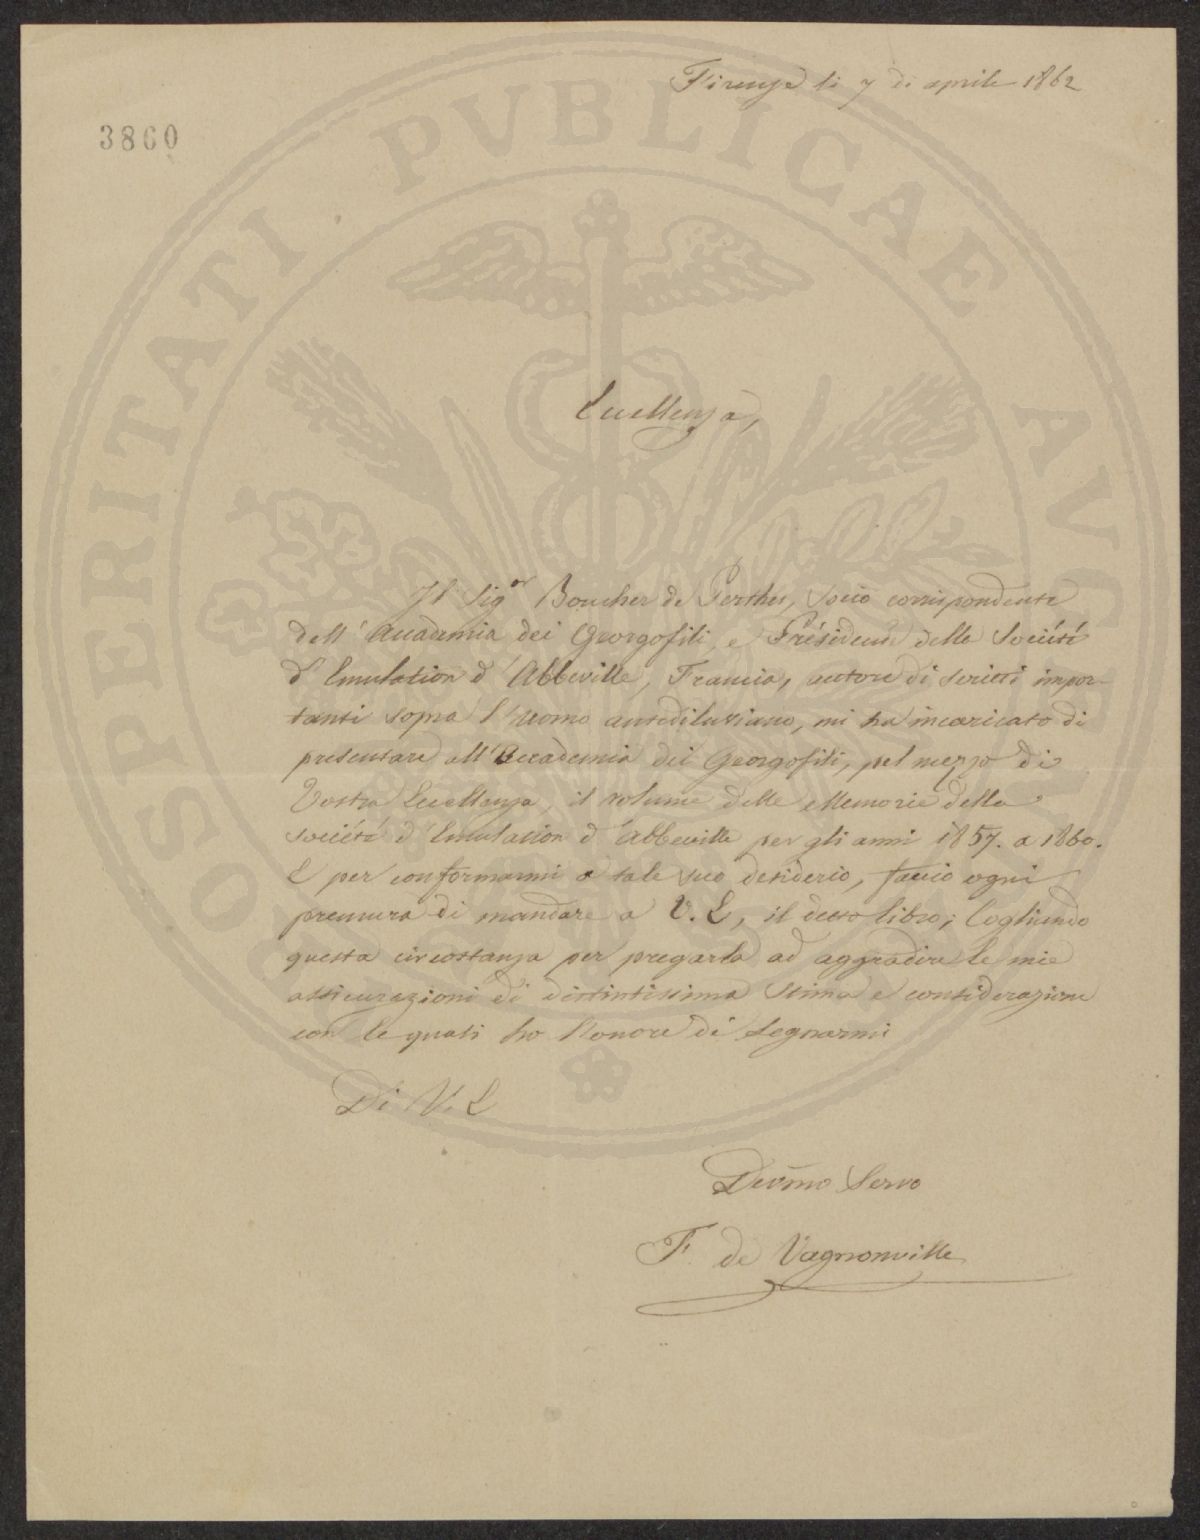 Firenze li 7 di aprile 1862
3860
PROSPERITATI PVBLICAE AVGENDAE
Eccellenza,
Il Sigor Boucher de Perthes, socio corrispondente
dell' Accademia dei Georgofili, e Présidente della Société
d'Emulation d'Abbeville, Francia, autore di scritti impor-
tanti sopra l'uomo antidiluviano, mi ha incaricato di
presentare all'Accademia dei Georgofili, pel mezzo di
Vostra Eccellenza, il volume delle Memorie della
Société d'Emulation d'Abbeville per gli anni 1857. a 1860.
E per conformarmi a tale suo desiderio, faccio ogni
premura di mandare a V. E, il detto libro; Cogliendo
questa circostanza per pregarla ad aggradire le mie
assicurazioni di distintissima stima e considerazione
con le quali ho l'onore di segnarmi
Di V. E
Devmo Servo
F. de Vagnonville